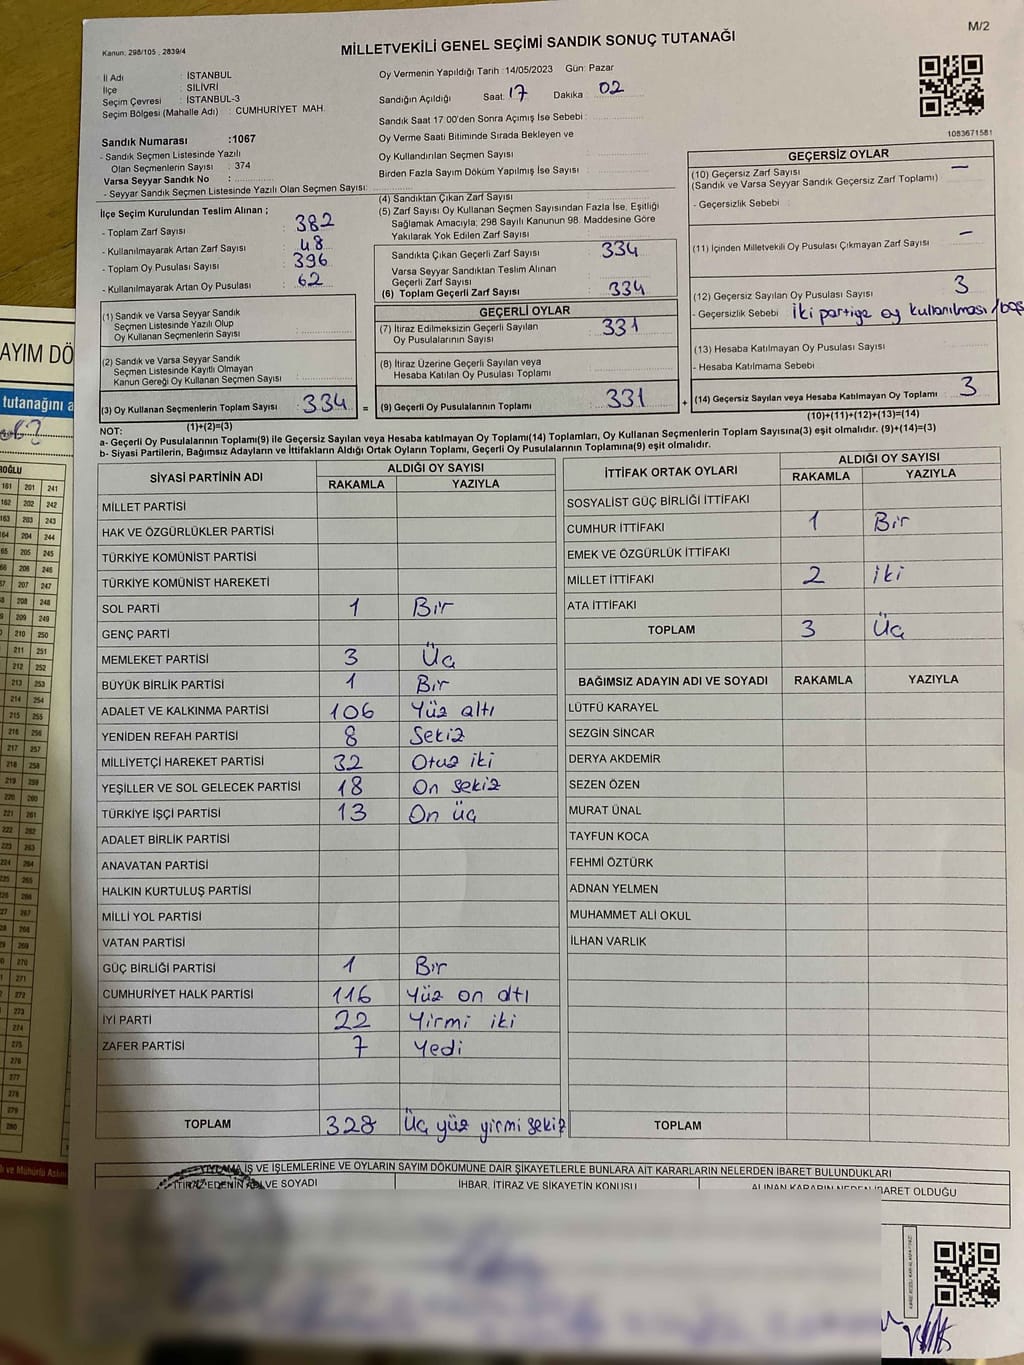 M/2
Kanun: 298/105 , 2839/4
MİLLETVEKİLİ GENEL SEÇİMİ SANDIK SONUÇ TUTANAĞI
İl Adı : İSTANBUL
İlçe : SİLİVRİ
Seçim Çevresi : İSTANBUL-3
Seçim Bölgesi (Mahalle Adı) : CUMHURİYET MAH.
Sandık Numarası :1067
- Sandık Seçmen Listesinde Yazılı
Olan Seçmenlerin Sayısı : 374
Varsa Seyyar Sandık No :
- Seyyar Sandık Seçmen Listesinde Yazılı Olan Seçmen Sayısı:
Oy Vermenin Yapıldığı Tarih :14/05/2023 Gün: Pazar
Sandığın Açıldığı Saat: 17 Dakika : 02
Sandık Saat 17:00'den Sonra Açımış İse Sebebi :
Oy Verme Saati Bitiminde Sırada Bekleyen ve
Oy Kullandırılan Seçmen Sayısı :
Birden Fazla Sayım Döküm Yapılmış İse Sayısı :
1083671581
İlçe Seçim Kurulundan Teslim Alınan ;
- Toplam Zarf Sayısı : 382
- Kullanılmayarak Artan Zarf Sayısı : 48
- Toplam Oy Pusulası Sayısı : 396
- Kullanılmayarak Artan Oy Pusulası : 62
(1) Sandık ve Varsa Seyyar Sandık
Seçmen Listesinde Yazılı Olup
Oy Kullanan Seçmenlerin Sayısı :
(2) Sandık ve Varsa Seyyar Sandık
Seçmen Listesinde Kayıtlı Olmayan
Kanun Gereği Oy Kullanan Seçmen Sayısı :
(3) Oy Kullanan Seçmenlerin Toplam Sayısı : 334 =
(1)+(2)=(3)
(4) Sandıktan Çıkan Zarf Sayısı :
(5) Zarf Sayısı Oy Kullanan Seçmen Sayısından Fazla İse, Eşitliği
Sağlamak Amacıyla; 298 Sayılı Kanunun 98. Maddesine Göre
Yakılarak Yok Edilen Zarf Sayısı :
Sandıkta Çıkan Geçerli Zarf Sayısı : 334
Varsa Seyyar Sandıktan Teslim Alınan
Geçerli Zarf Sayısı :
(6) Toplam Geçerli Zarf Sayısı : 334
GEÇERLİ OYLAR
(7) İtiraz Edilmeksizin Geçerli Sayılan
Oy Pusulalarının Sayısı : 331
(8) İtiraz Üzerine Geçerli Sayılan veya
Hesaba Katılan Oy Pusulası Toplamı :
(9) Geçerli Oy Pusulalarının Toplamı : 331 +
GEÇERSİZ OYLAR
(10) Geçersiz Zarf Sayısı : —
(Sandık ve Varsa Seyyar Sandık Geçersiz Zarf Toplamı)
- Geçersizlik Sebebi :
(11) İçinden Milletvekili Oy Pusulası Çıkmayan Zarf Sayısı : —
(12) Geçersiz Sayılan Oy Pusulası Sayısı : 3
- Geçersizlik Sebebi : İki partiye oy kullanılması/boş
(13) Hesaba Katılmayan Oy Pusulası Sayısı :
- Hesaba Katılmama Sebebi :
(14) Geçersiz Sayılan veya Hesaba Katılmayan Oy Toplamı : 3
(10)+(11)+(12)+(13)=(14)
NOT:
a- Geçerli Oy Pusulalarının Toplamı(9) ile Geçersiz Sayılan veya Hesaba katılmayan Oy Toplamı(14) Toplamları, Oy Kullanan Seçmenlerin Toplam Sayısına(3) eşit olmalıdır. (9)+(14)=(3)
b- Siyasi Partilerin, Bağımsız Adayların ve İttifakların Aldığı Ortak Oyların Toplamı, Geçerli Oy Pusulalarının Toplamına(9) eşit olmalıdır.
SİYASİ PARTİNİN ADI ALDIĞI OY SAYISI
RAKAMLA YAZIYLA
MİLLET PARTİSİ
HAK VE ÖZGÜRLÜKLER PARTİSİ
TÜRKİYE KOMÜNİST PARTİSİ
TÜRKİYE KOMÜNİST HAREKETİ
SOL PARTİ 1 Bir
GENÇ PARTİ
MEMLEKET PARTİSİ 3 Üç
BÜYÜK BİRLİK PARTİSİ 1 Bir
ADALET VE KALKINMA PARTİSİ 106 Yüz altı
YENİDEN REFAH PARTİSİ 8 Sekiz
MİLLİYETÇİ HAREKET PARTİSİ 32 Otuz iki
YEŞİLLER VE SOL GELECEK PARTİSİ 18 On sekiz
TÜRKİYE İŞÇİ PARTİSİ 13 On üç
ADALET BİRLİK PARTİSİ
ANAVATAN PARTİSİ
HALKIN KURTULUŞ PARTİSİ
MİLLİ YOL PARTİSİ
VATAN PARTİSİ
GÜÇ BİRLİĞİ PARTİSİ 1 Bir
CUMHURİYET HALK PARTİSİ 116 Yüz on altı
İYİ PARTİ 22 Yirmi iki
ZAFER PARTİSİ 7 Yedi
TOPLAM 328 Üç yüz yirmi sekiz
İTTİFAK ORTAK OYLARI ALDIĞI OY SAYISI
RAKAMLA YAZIYLA
SOSYALİST GÜÇ BİRLİĞİ İTTİFAKI
CUMHUR İTTİFAKI 1 Bir
EMEK VE ÖZGÜRLÜK İTTİFAKI
MİLLET İTTİFAKI 2 İki
ATA İTTİFAKI
TOPLAM 3 Üç
BAĞIMSIZ ADAYIN ADI VE SOYADI RAKAMLA YAZIYLA
LÜTFÜ KARAYEL
SEZGİN SİNCAR
DERYA AKDEMİR
SEZEN ÖZEN
MURAT ÜNAL
TAYFUN KOCA
FEHMİ ÖZTÜRK
ADNAN YELMEN
MUHAMMET ALİ OKUL
İLHAN VARLIK
TOPLAM
OYLAMA İŞ VE İŞLEMLERİNE VE OYLARIN SAYIM DÖKÜMÜNE DAİR ŞİKAYETLERLE BUNLARA AİT KARARLARIN NELERDEN İBARET BULUNDUKLARI
İTİRAZ EDENİN ADI VE SOYADI İHBAR, İTİRAZ VE ŞİKAYETİN KONUSU ALINAN KARARIN NEDEN İBARET OLDUĞU
AYIM DÖ
tutanağını a
ROĞLU
161 201 241
162 202 242
163 203 243
164 204 244
205 245
206 246
207 247
208 248
209 249
210 250
211 251
212 252
213 253
214 254
215 255
216 256
217 257
218 258
219 259
220 260
221 261
222 262
223 263
224 264
265
266
267
268
269
270
271
272
273
274
275
276
277
278
279
280